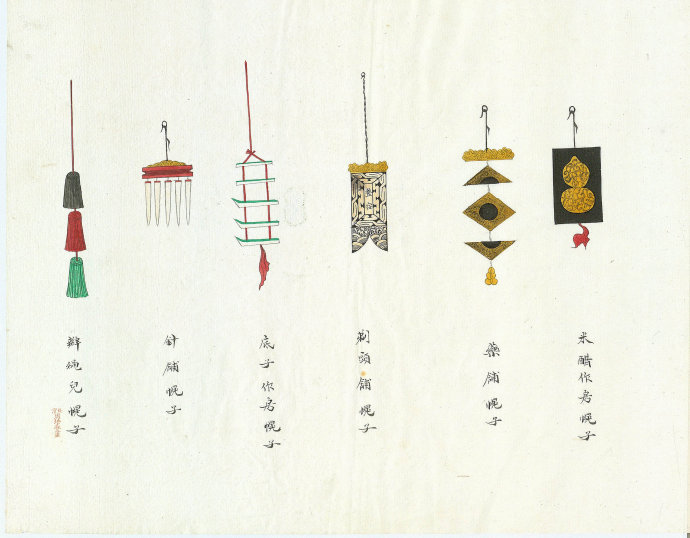 米醋作房幌子
藥鋪幌子
剃頭鋪幌子
底子作房幌子
針鋪幌子
辮繩兒幌子